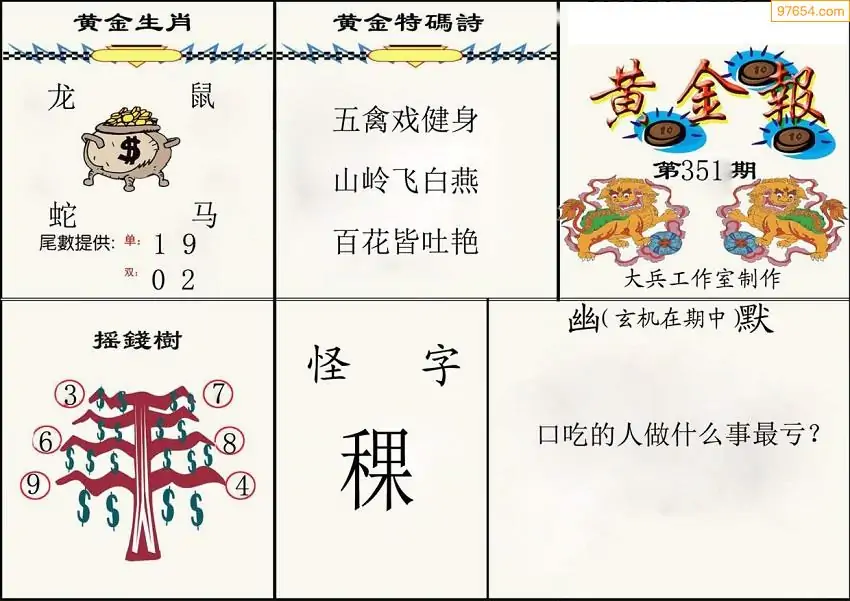 97654.com
黄金生肖
龙 鼠
$
蛇 马
尾數提供: 单: 1 9
双: 0 2
黄金特碼詩
五禽戏健身
山岭飞白燕
百花皆吐艳
黄金報
10
10
10
第351期
大兵工作室制作
摇錢樹
3 7
6 8
9 4
$ $ $ $
$ $ $ $
$ $ $ $ $ $
$ $ $ $
怪 字
稞
幽(玄机在期中)默
口吃的人做什么事最亏?